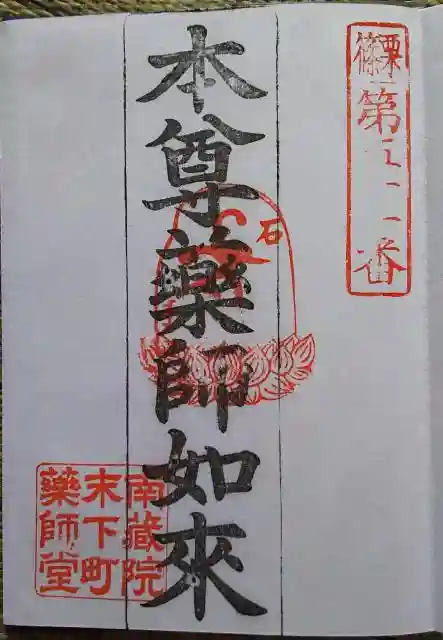 篠栗
第二一番
本尊藥師如來
石
南蔵院
末下町
藥師堂